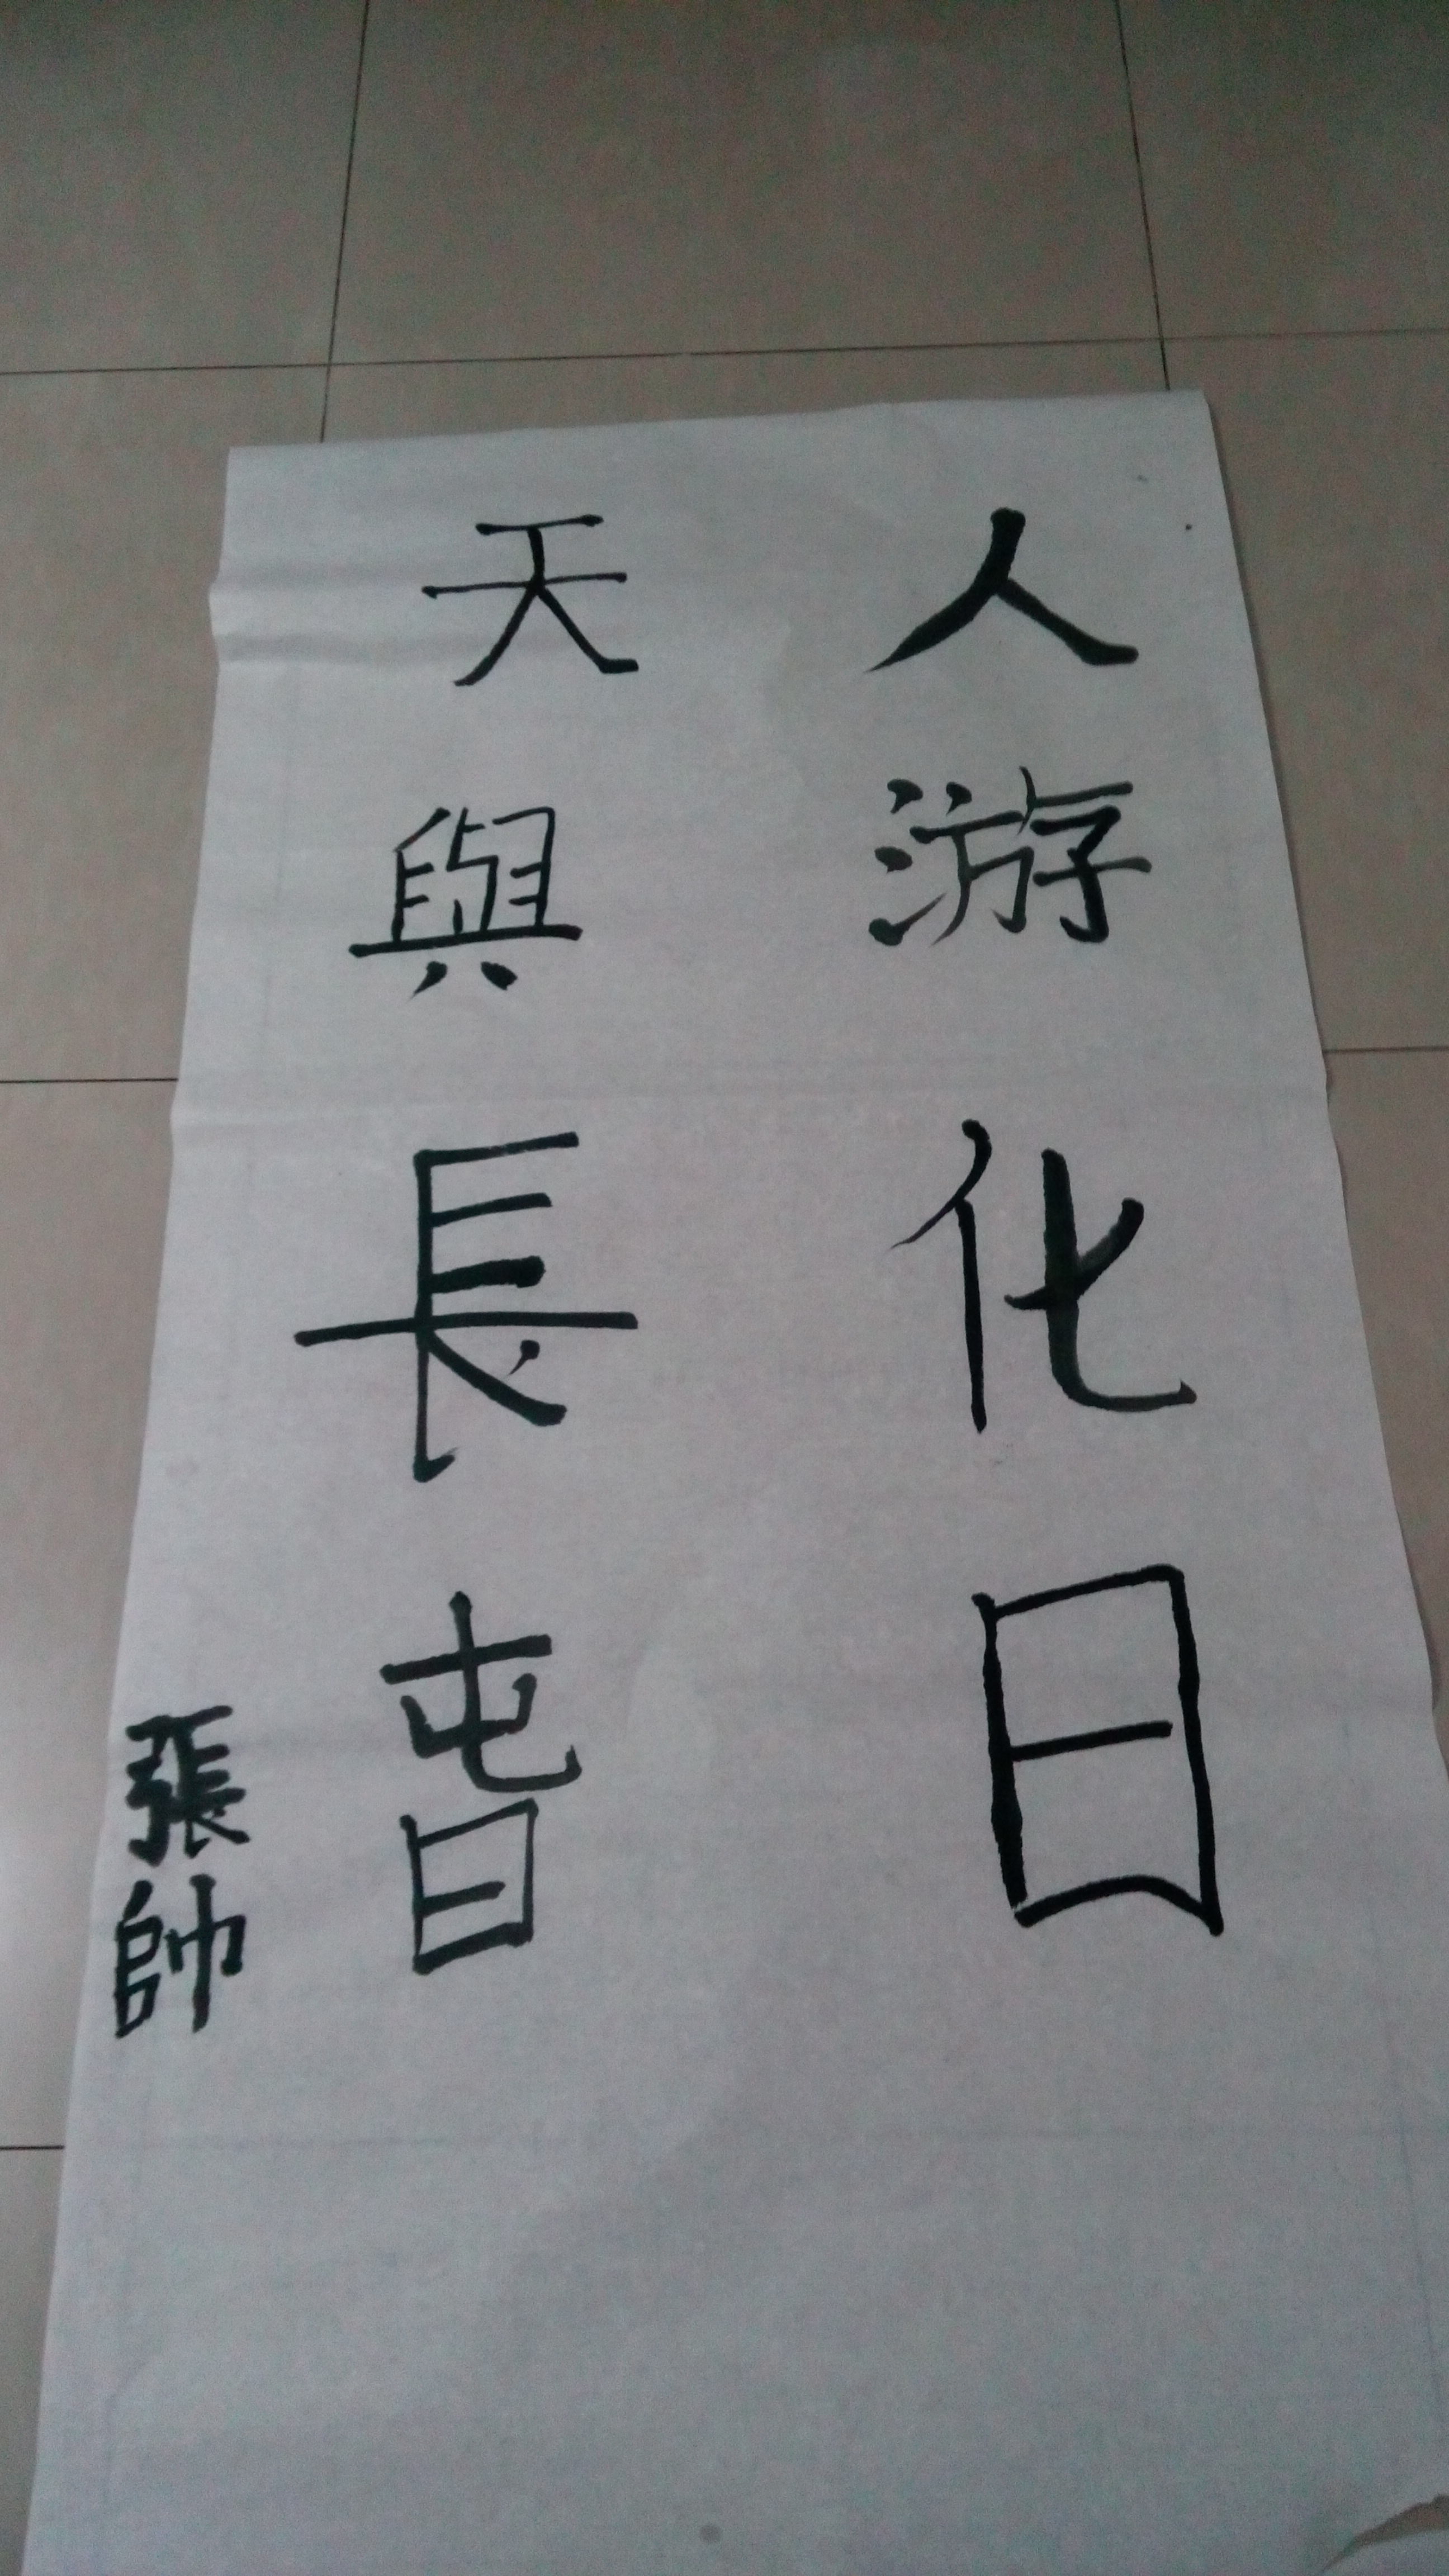 人游化日
天與長旾
張帥